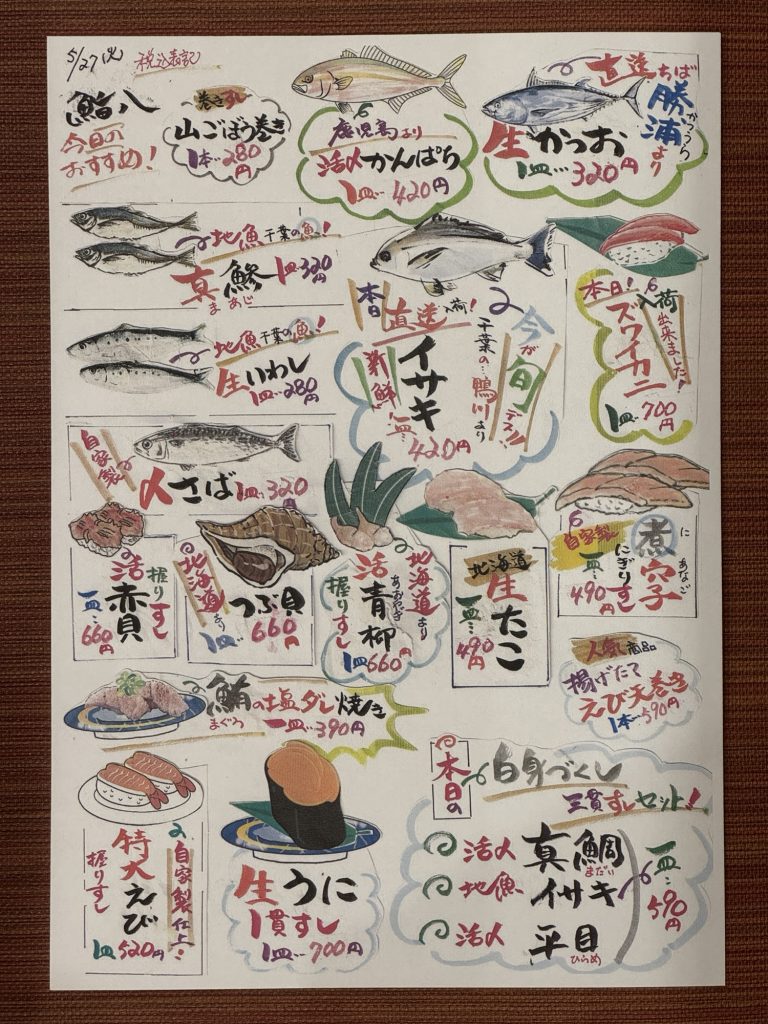 5/27(火) 税込表記
鮨八
今日の
おすすめ!
巻きずし
山ごぼう巻き
1本…280円
鹿児島より
活〆かんぱち
1皿…420円
直送 ちば
勝浦より
かつうら
生かつお
1皿…320円
地魚 千葉の魚!
真鯵 1皿320円
まあじ
地魚 千葉の魚!
生いわし
1皿…280円
自家製
〆さば 1皿…320円
本日
直送入荷!
新鮮
イサキ
一皿…420円
千葉の…鴨川より
今が旬デス!!
本日!
入荷出来ました!
ズワイカニ
1皿…700円
活赤貝
握りすし
一皿…660円
北海道より
つぶ貝
1皿…660円
北海道より
活青柳
あおやぎ
握りすし
1皿660円
北海道
生たこ
一皿…490円
自家製
煮穴子
にあなご
にぎりすし
一皿…490円
鮪の塩ダレ焼き
まぐろ
一皿…390円
人気商品
揚げたて
えび天巻き
1本…590円
自家製仕上!
特大えび
握りすし
1皿520円
生うに
1貫すし
1皿…700円
本日の
白身づくし
三貫すしセット!
活〆 真鯛
まだい
地魚 イサキ
活〆 平目
ひらめ
一皿…590円